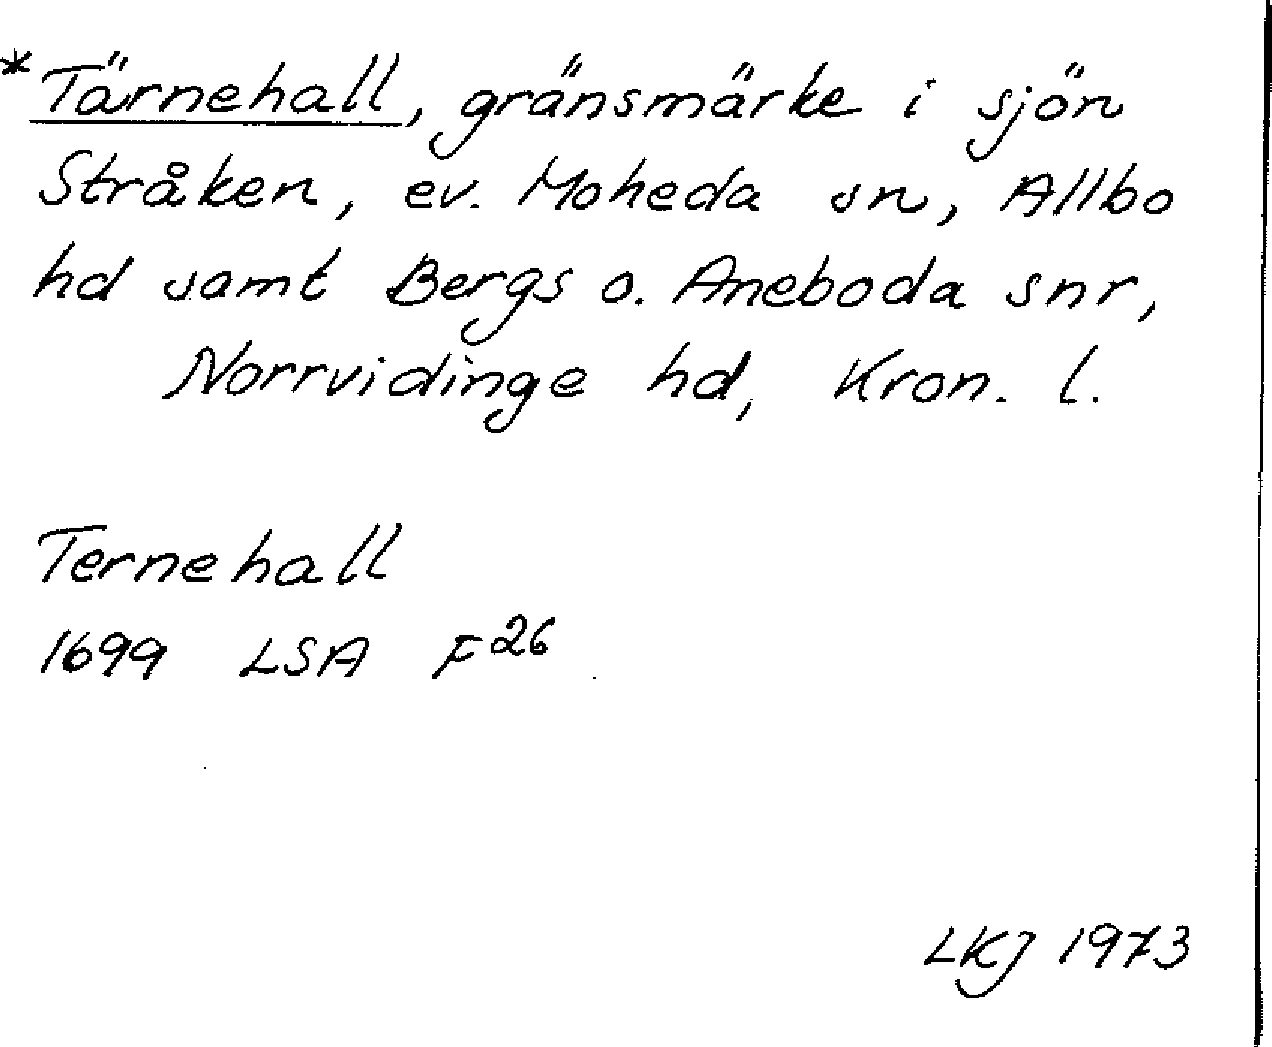 *Tärnehall, gränsmärke i sjön
Stråken, ev. Moheda sn, Allbo
hd samt Bergs o. Aneboda snr,
Norrvidinge hd, Kron. l.
Ternehall
1699 LSA F26
LKJ 1973